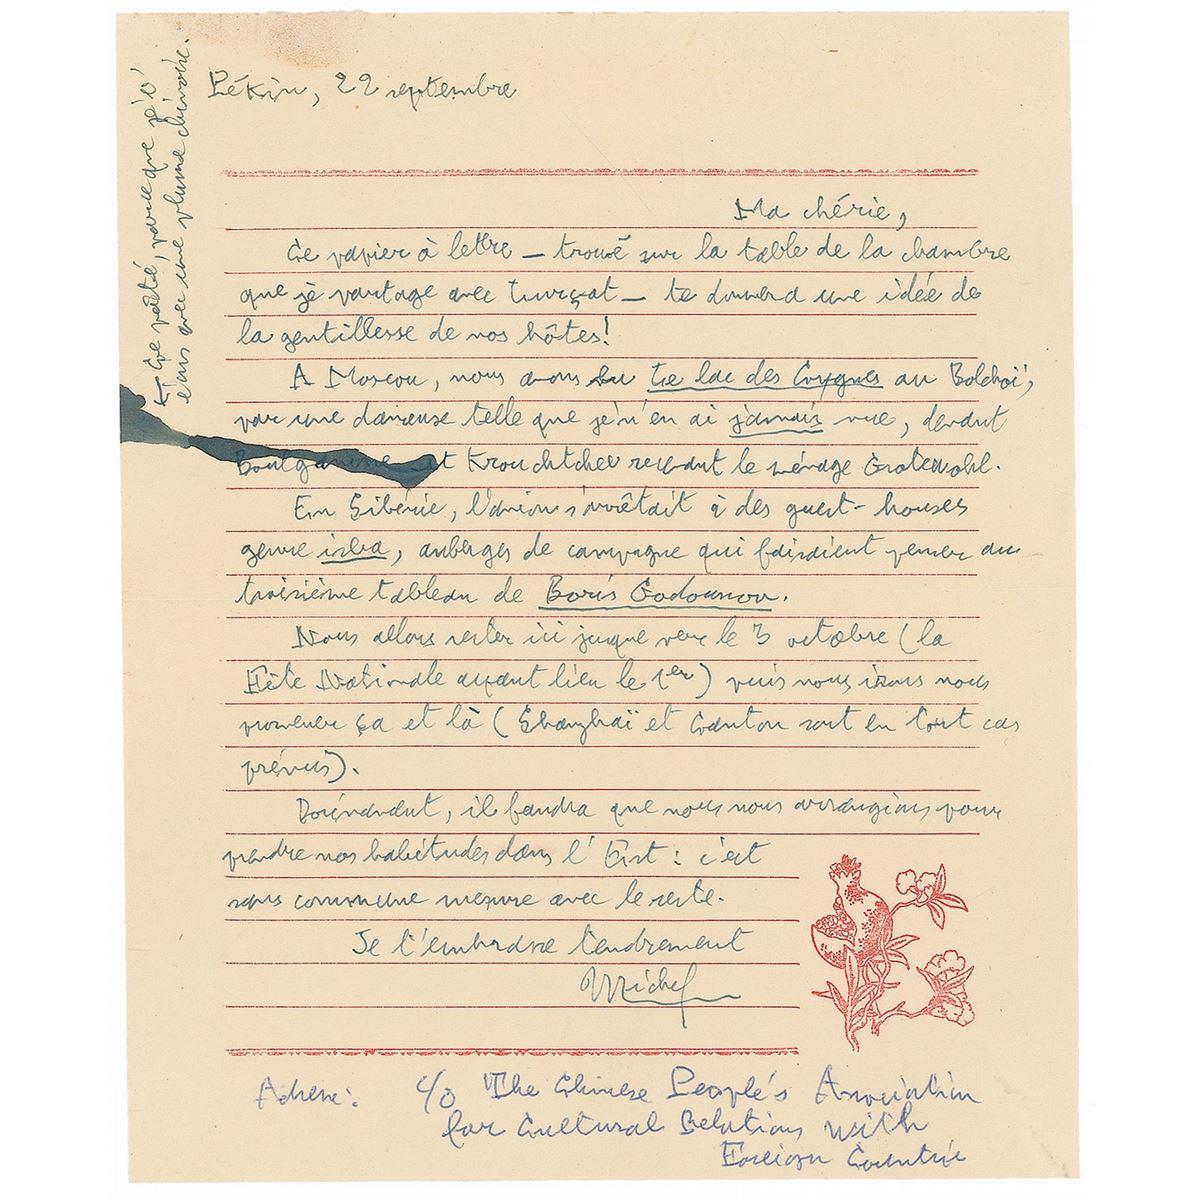 Pékin, 22 septembre
Ma chérie,
Ce papier à lettre — trouvé sur la table de la chambre
que je partage avec Lurçat — te donnera une idée de
la gentillesse de nos hôtes!
A Moscou, nous avons vu Le lac des Cygnes au Bolchoï,
par une danseuse telle que je n'en ai jamais vue, devant
Boulganine et Krouchtchev recevant le ménage Grotewohl.
En Sibérie, l'avion s'arrêtait à des guest-houses
genre isba, auberges de campagne qui faisaient penser au
troisième tableau de Boris Godounov.
Nous allons rester ici jusque vers le 3 octobre (la
Fête Nationale ayant lieu le 1er) puis nous irons nous
promener ça et là (Shanghaï et Canton sont en tout cas
prévus).
Dorénavant, il faudra que nous nous arrangions pour
prendre nos habitudes dans l'Est : c'est
sans commune mesure avec le reste.
Je t'embrasse tendrement
Michel
Adresse: c/o The Chinese People's Association
for Cultural Relations with
Foreign Countrie
← Ce pâté, parce que je t'é
cris avec une plume chinoise.